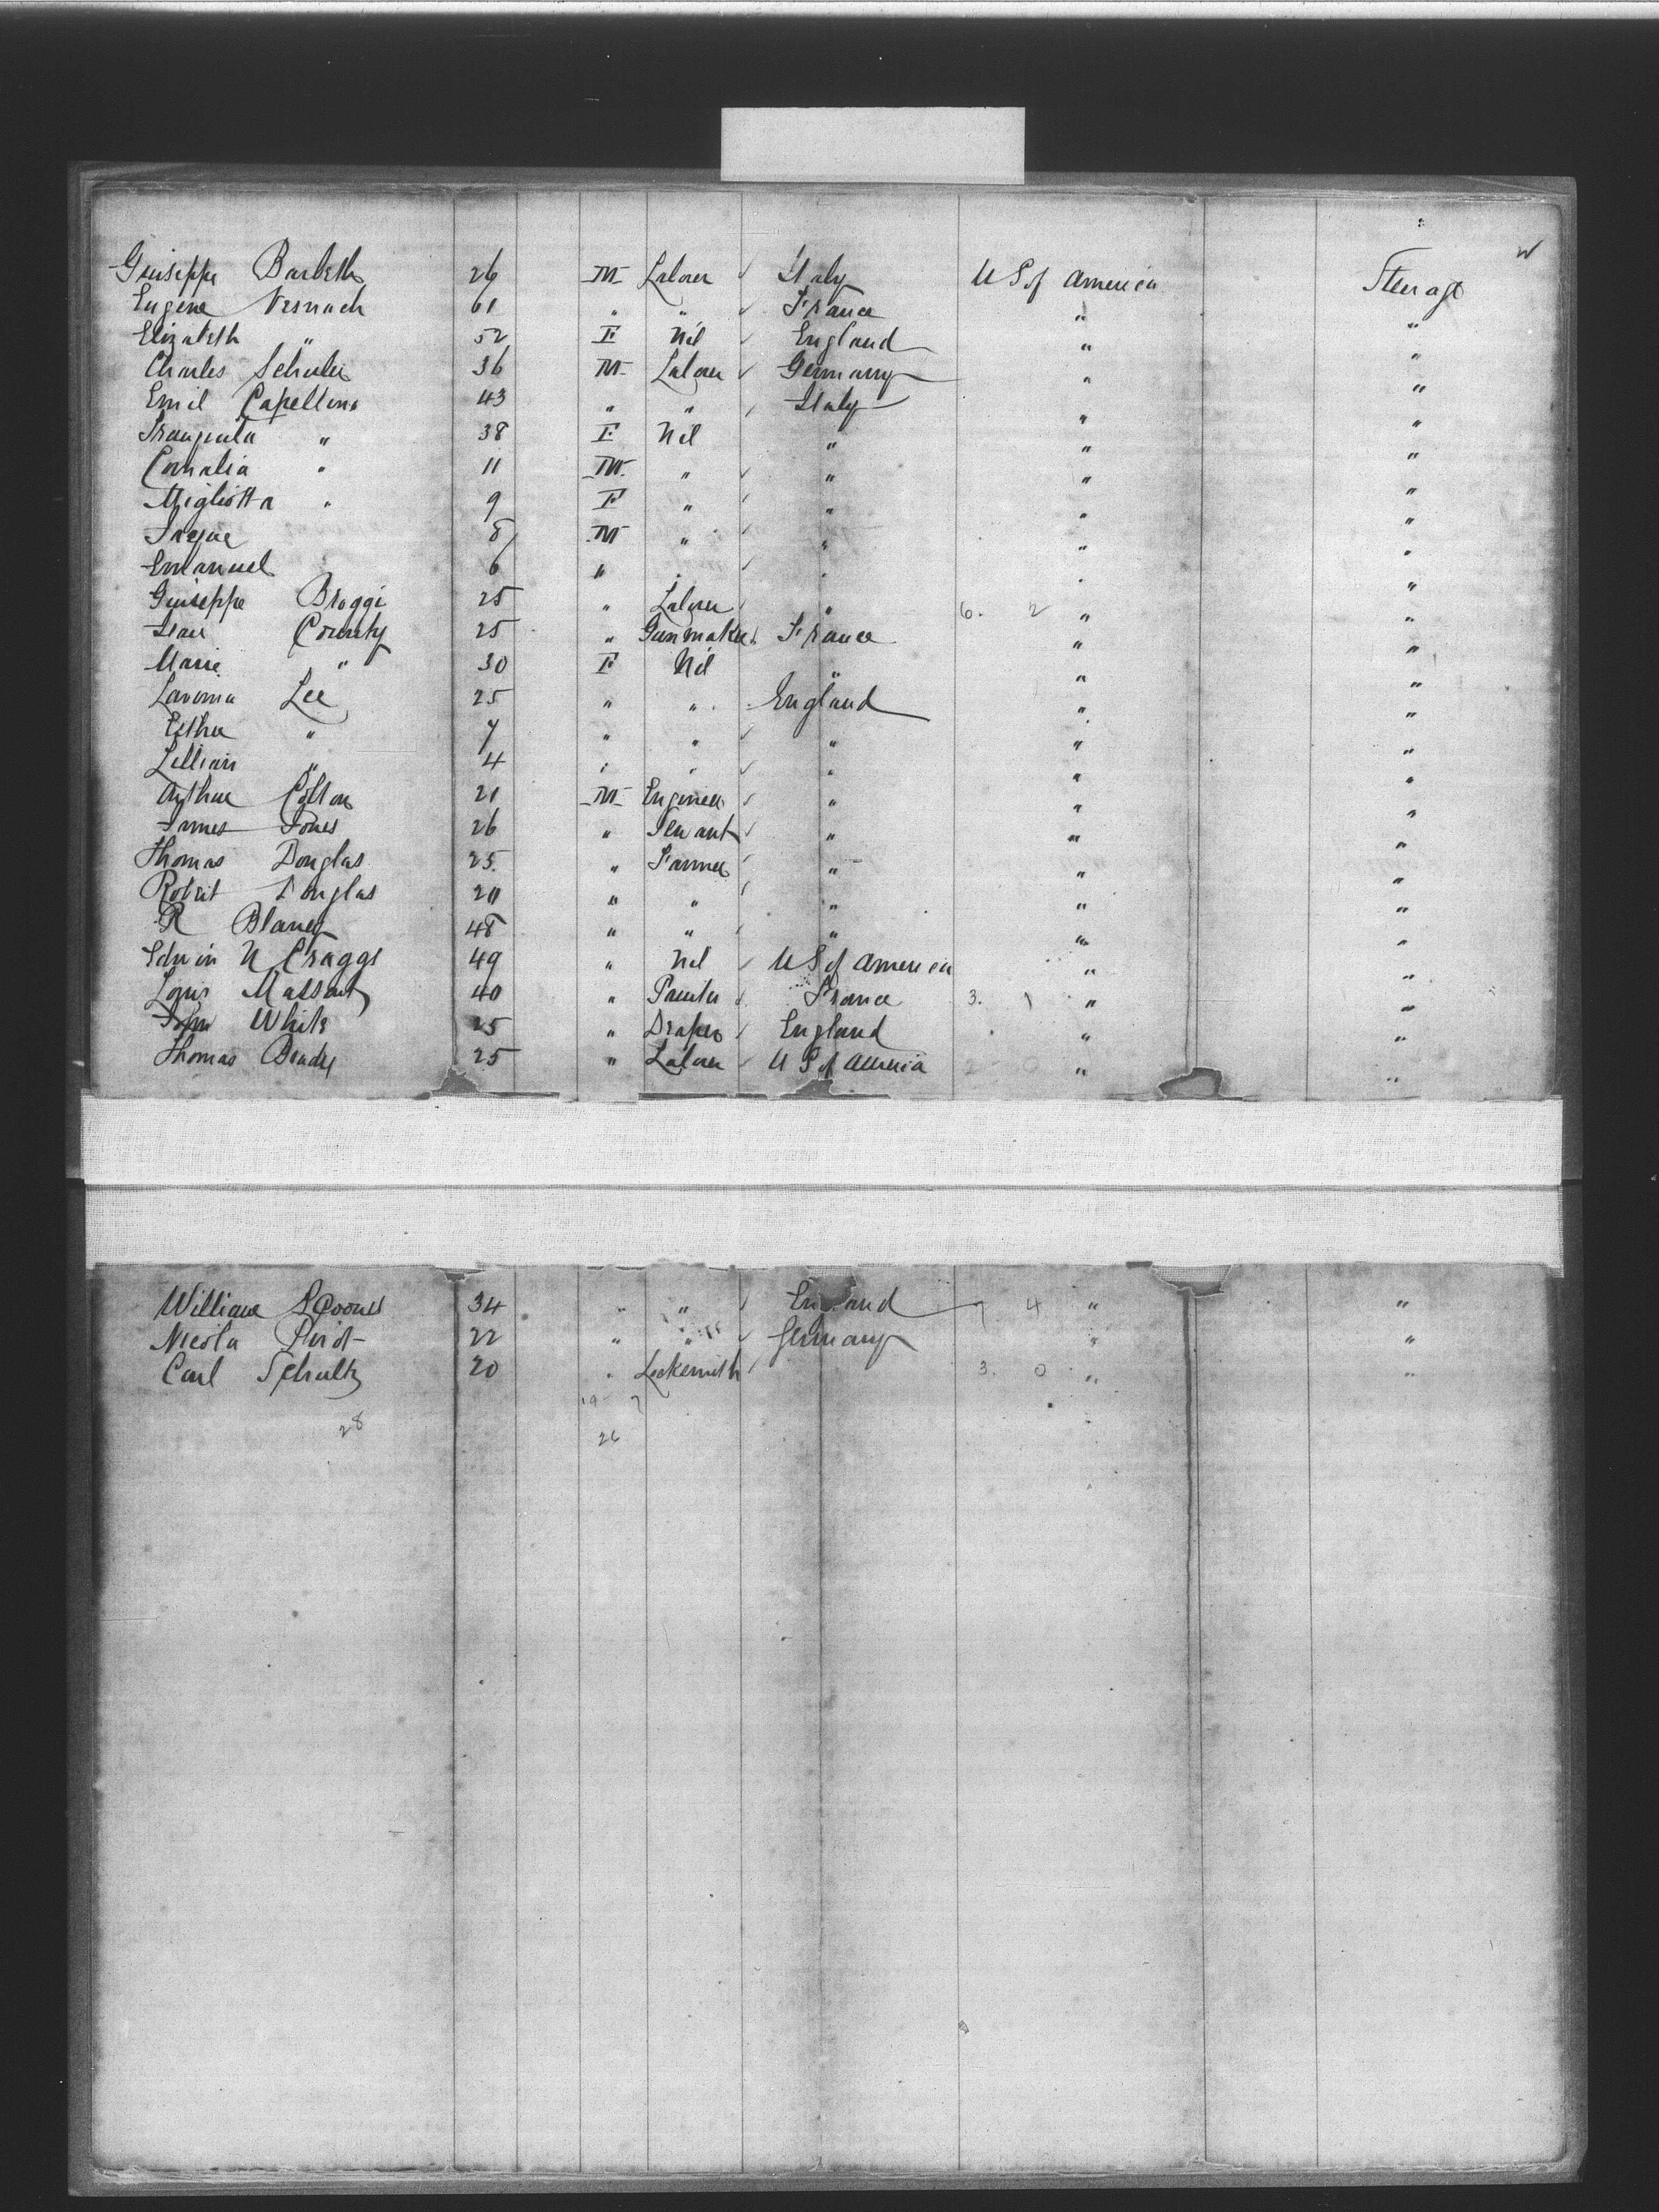 Giuseppe Barbetta 26 M Laborer Italy U S of America Steerage
Eugene 61 " " France " "
Elizabeth " 52 F Nil England " "
Charles Schuler 36 M Laborer Germany " "
Emil Capellino 43 " " Italy " "
" 38 F Nil " " "
Cornalia " 11 M " " " "
Migliotta " 9 F " " " "
8 M " " " "
Emanuel 6 " " " " "
Giuseppe Broggi 25 " Laborer " 6. 2 " "
25 " Gunmaker France " "
Marie " 30 F Nil " " "
Lee 25 " " England " "
Esther " 7 " " " " "
Lillian " 4 " " " " "
Arthur Colton 21 M Engineer " " "
James Jones 26 " Servant " " "
Thomas Douglas 25 " Farmer " " "
Robert Douglas 20 " " " " "
R Blaney 48 " " " " "
Edwin N Craggs 49 " Nil U S of America " "
Louis 40 " Painter France 3. 1 " "
John White 25 " Draper England " "
Thomas Brady 25 " Laborer U S of America " "
William 34 " " England 7 4 " "
Nicola 22 " " Germany " "
Carl Schultz 20 " Locksmith 3. 0 " "
19 7
28 26